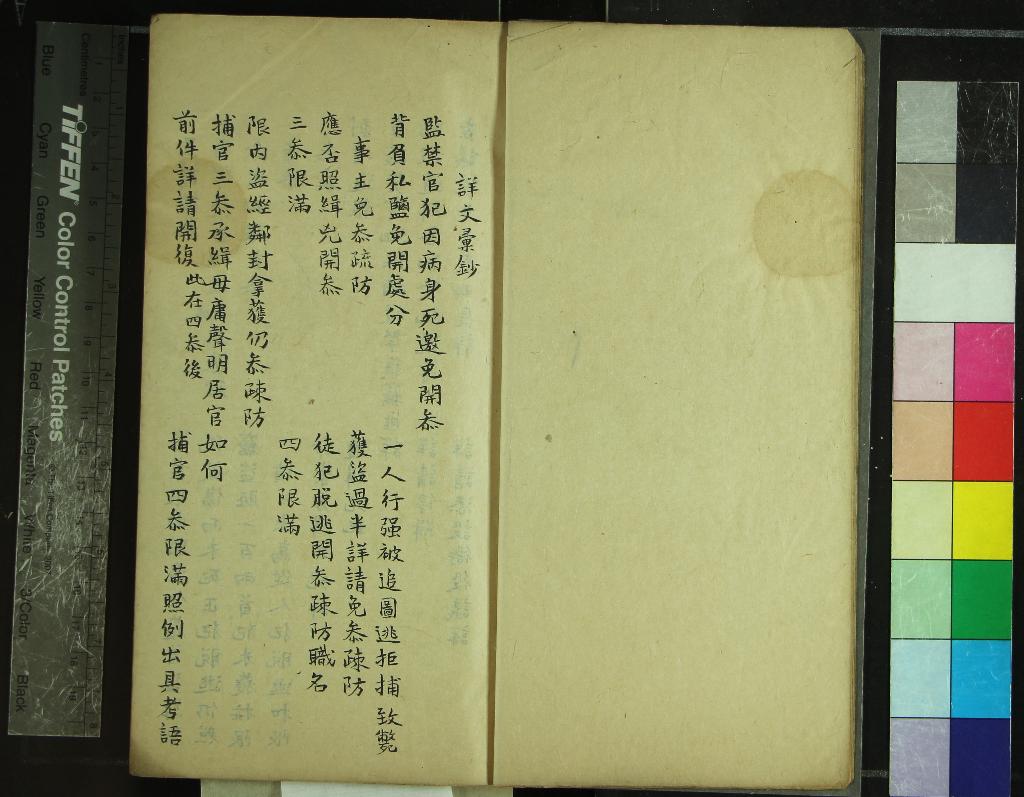 詳文彙鈔
監禁官犯因病身死邀免開叅
背負私鹽免開處分
一人行强被追圖逃拒捕致斃
事主免叅疏防
獲盜過半詳請免叅疎防
應否照緝兇開叅
徒犯脱逃開叅疎防職名
三叅限滿
四叅限滿
限内盜經鄰封拿獲仍叅疎防
捕官三叅承緝毋庸聲明居官如何
前件詳請開復此在四叅後
捕官四叅限滿照例出具考語
TIFFEN Color Control Patches
Inches
Centimetres
Blue Cyan Green Yellow Red Magenta White 3/Color Black